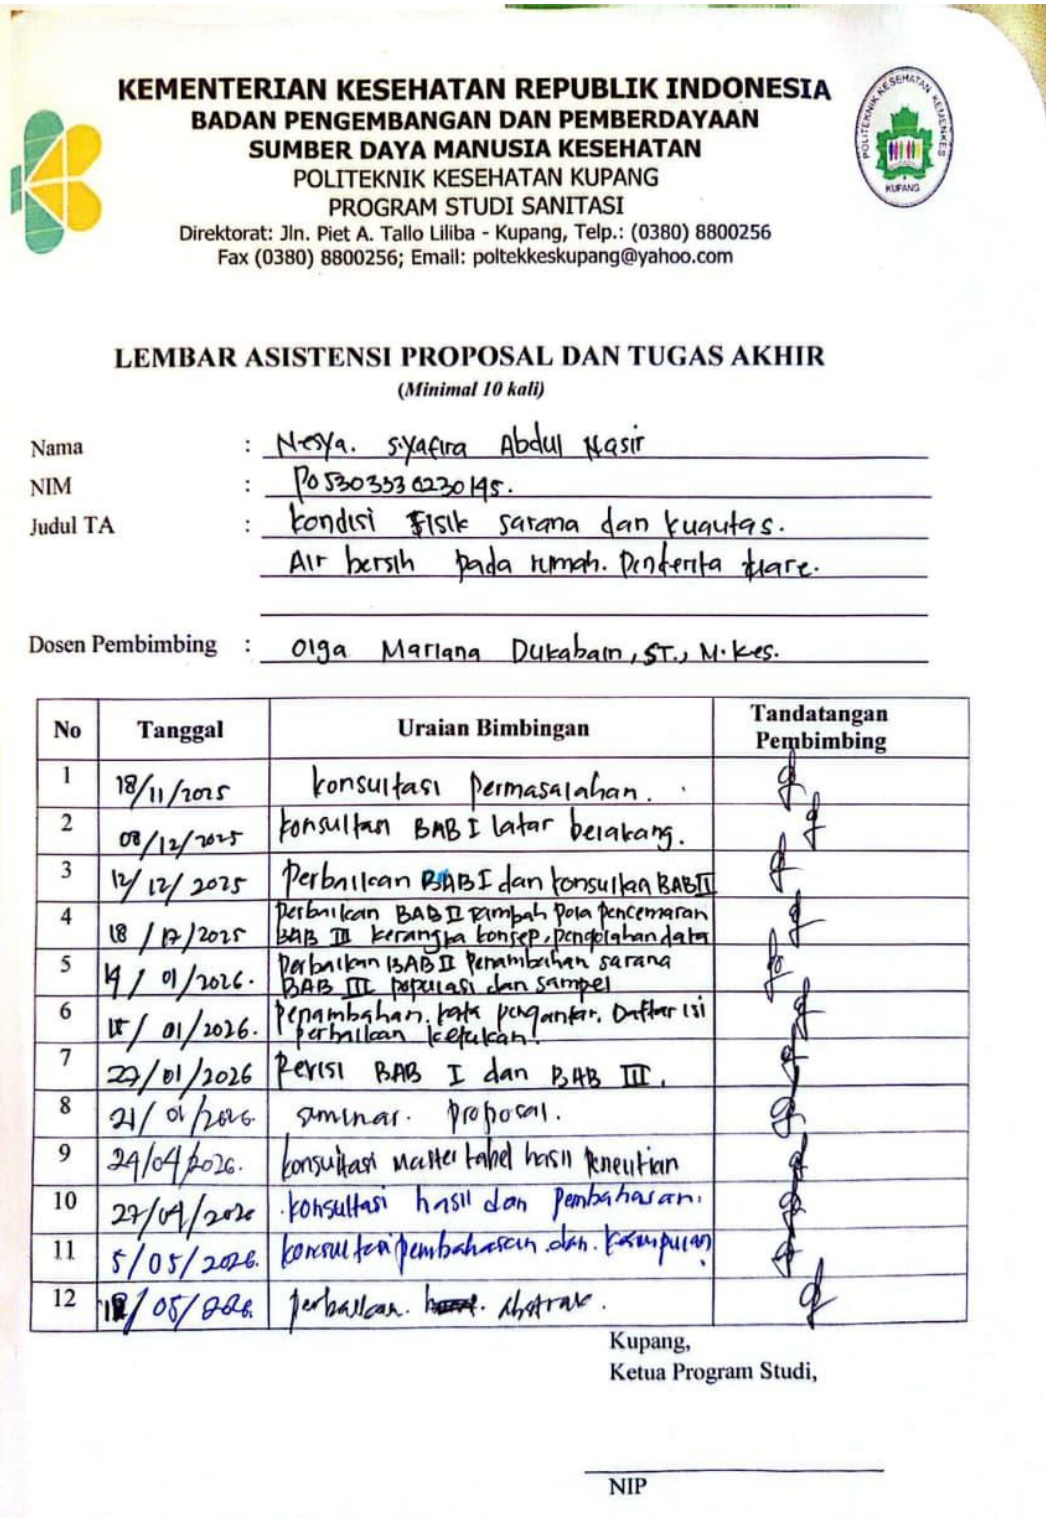 KEMENTERIAN KESEHATAN REPUBLIK INDONESIA
BADAN PENGEMBANGAN DAN PEMBERDAYAAN
SUMBER DAYA MANUSIA KESEHATAN
POLITEKNIK KESEHATAN KUPANG
PROGRAM STUDI SANITASI
Direktorat: Jln. Piet A. Tallo Liliba - Kupang, Telp.: (0380) 8800256
Fax (0380) 8800256; Email: poltekkeskupang@yahoo.com
POLITEKNIK KESEHATAN KEMENKES
KUPANG
LEMBAR ASISTENSI PROPOSAL DAN TUGAS AKHIR
(Minimal 10 kali)
Nama : Nesya. syafira Abdul Nasir
NIM : PO5303330230195.
Judul TA : kondisi Fisik sarana dan kualitas.
Air bersih pada rumah. Penderita diare.
Dosen Pembimbing : Olga Mariana Dukabain, ST., M.Kes.
No Tanggal Uraian Bimbingan Tandatangan Pembimbing
1 18/11/2025 konsultasi permasalahan.
2 08/12/2025 konsultasi BAB I latar belakang.
3 12/12/2025 perbaikan BAB I dan konsultasi BAB II
4 18/12/2025 perbaikan BAB II tambah pola pencemaran
BAB III kerangka konsep, pengolahan data
5 14/01/2026. perbaikan BAB II penambahan sarana
BAB III populasi dan sampel
6 /01/2026. penambahan. kata pengantar. Daftar isi
perbaikan ketikan.
7 /01/2026 Revisi BAB I dan BAB III.
8 21/01/2026. seminar. proposal.
9 24/04/2026. konsultasi Master tabel hasil penelitian
10 27/04/2026 konsultasi hasil dan pembahasan.
11 5/05/2026. konsultasi pembahasan dan. kesimpulan
12 /05/2026. perbaikan. Abstrak.
Kupang,
Ketua Program Studi,
NIP